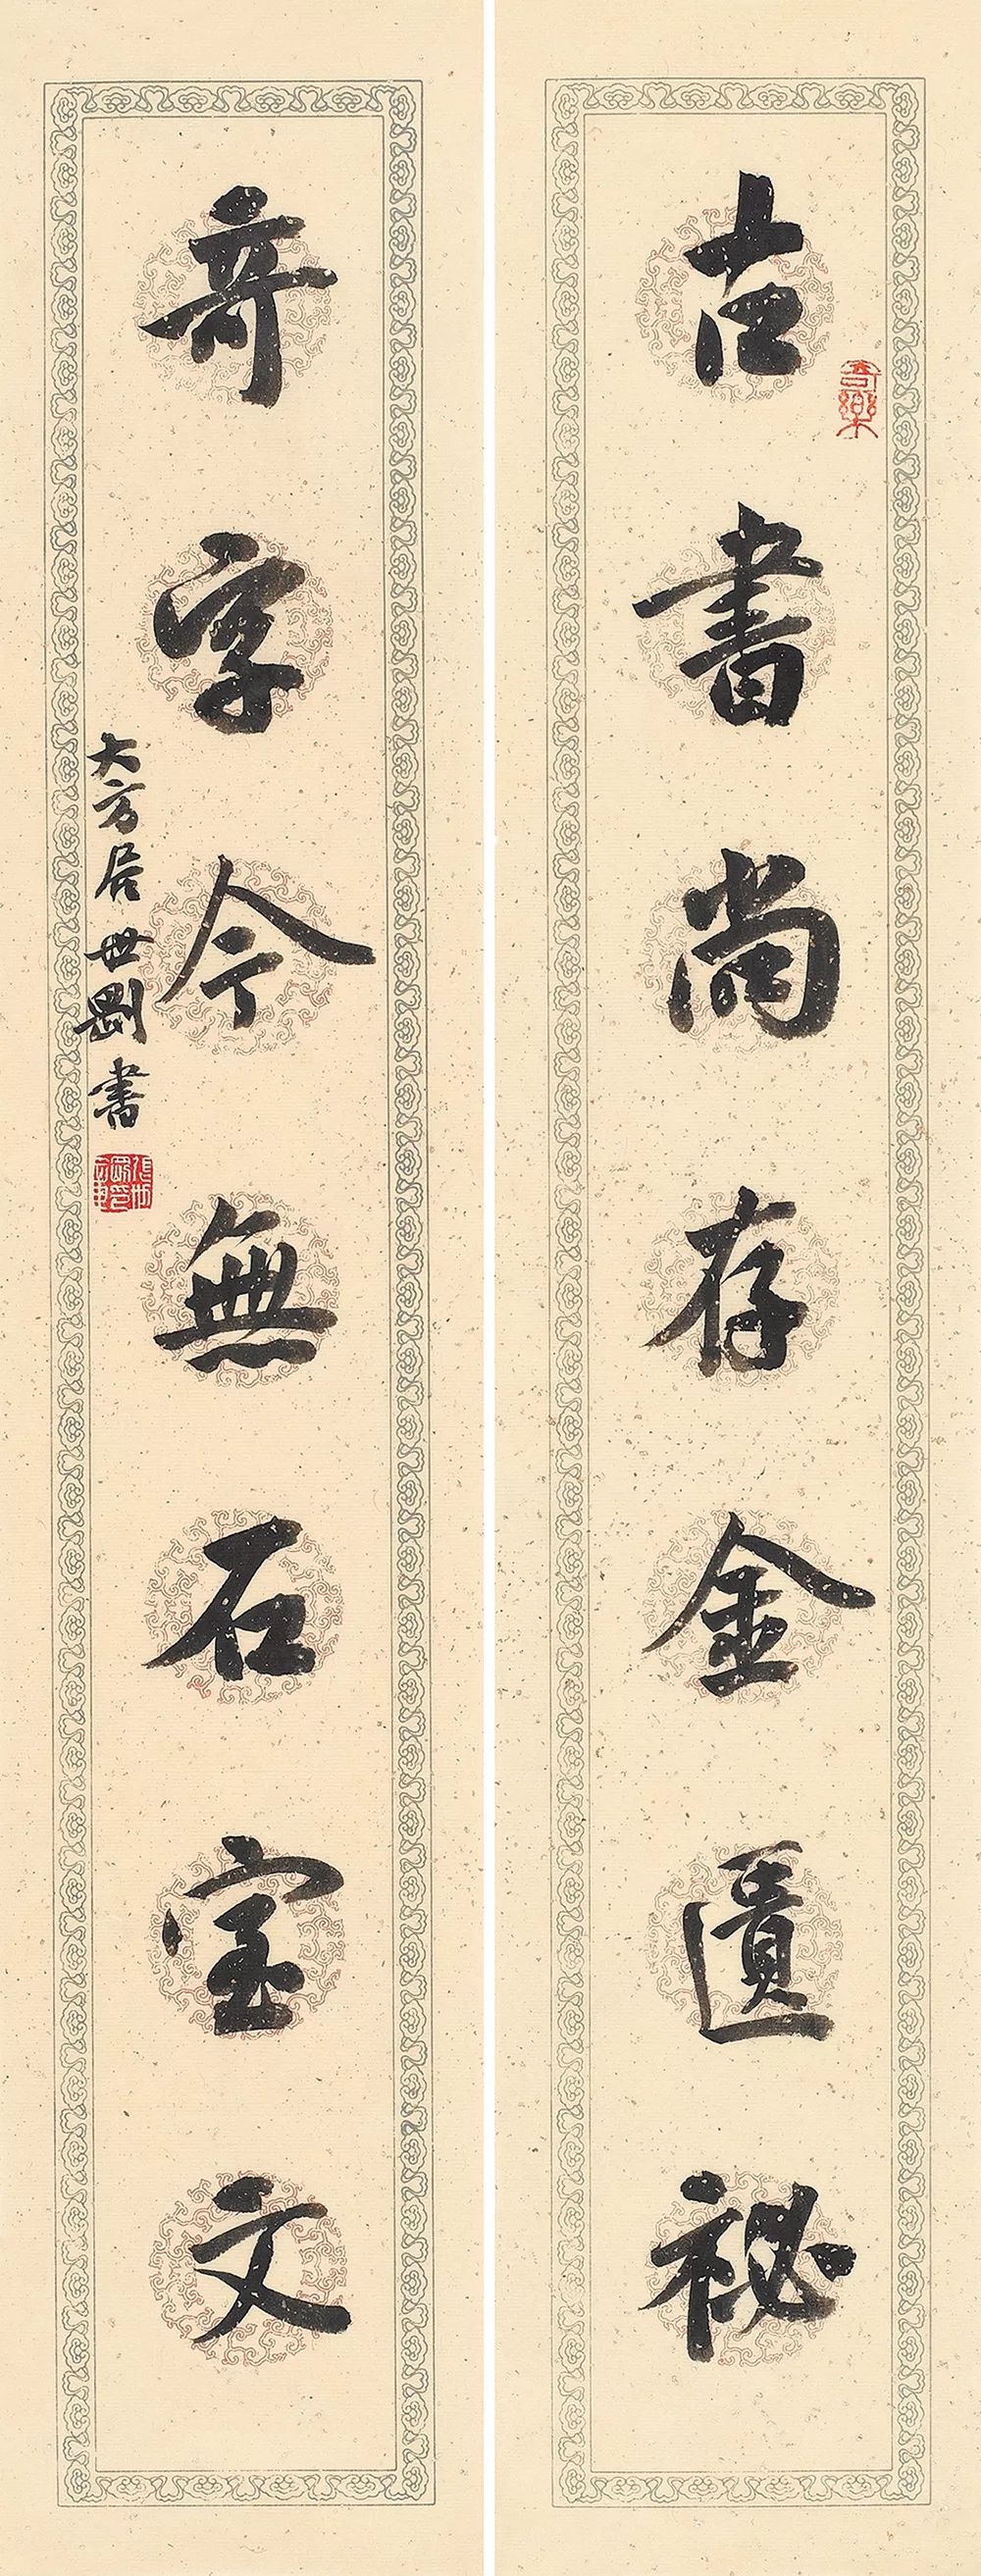 古書尚存金匱祕
奇字今無石室文
大方居世剛書
奇樂